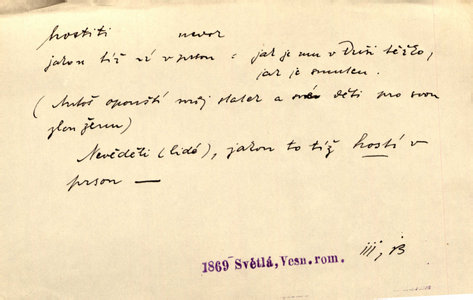 hostiti nevor
jakou tíž má v prsou = jak je mu v duši těžko,
jak je smuten.
(Antoš opouští můj statek a své děti pro svou
zlou ženu)
Nevěděli (lidé), jakou to tíž hostí v
prsou —
1869 Světlá, Vesn. rom.
III, B